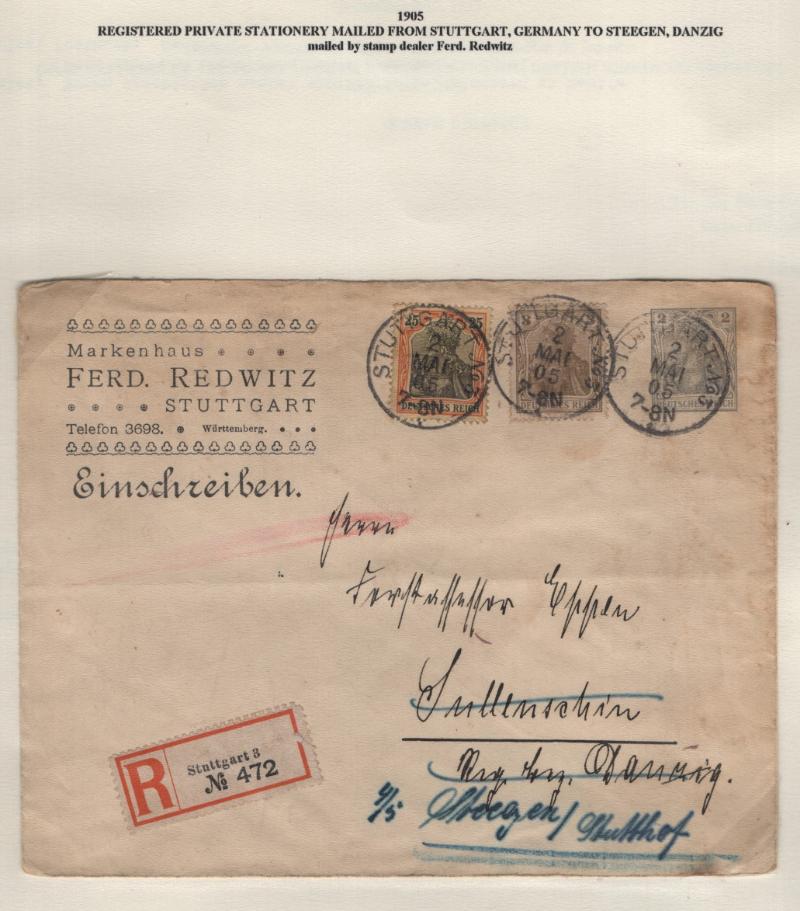 1905
REGISTERED PRIVATE STATIONERY MAILED FROM STUTTGART, GERMANY TO STEEGEN, DANZIG
mailed by stamp dealer Ferd. Redwitz
Markenhaus
FERD. REDWITZ
STUTTGART
Telefon 3698. Württemberg.
Einschreiben.
25 25
DEUTSCHES REICH
STUTTGART No 3
2
MAI
05
7-8N
DEUTSCHES REICH
STUTTGART No 3
2
MAI
05
7-8N
2 2
DEUTSCHES REICH
STUTTGART No 3
2
MAI
05
7-8N
Herrn
Forstassessor
Sullenschin
Reg. bez. Danzig.
4/5 Steegen / Stutthof
R
Stuttgart 3
No 472